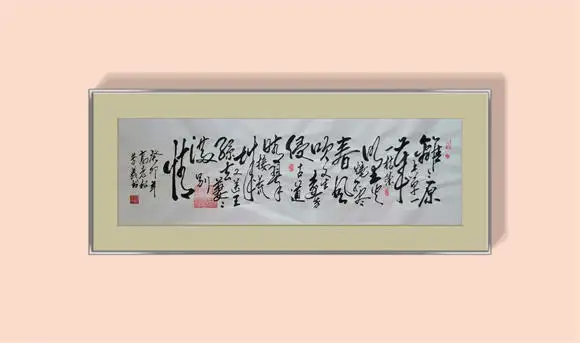 離〻原
上草一
歲
一枯榮
野火
燒不盡
春風
吹又生
遠芳
侵古道
晴翠
接荒
城
又送王
孫去萋〻
滿別
情
癸卯年